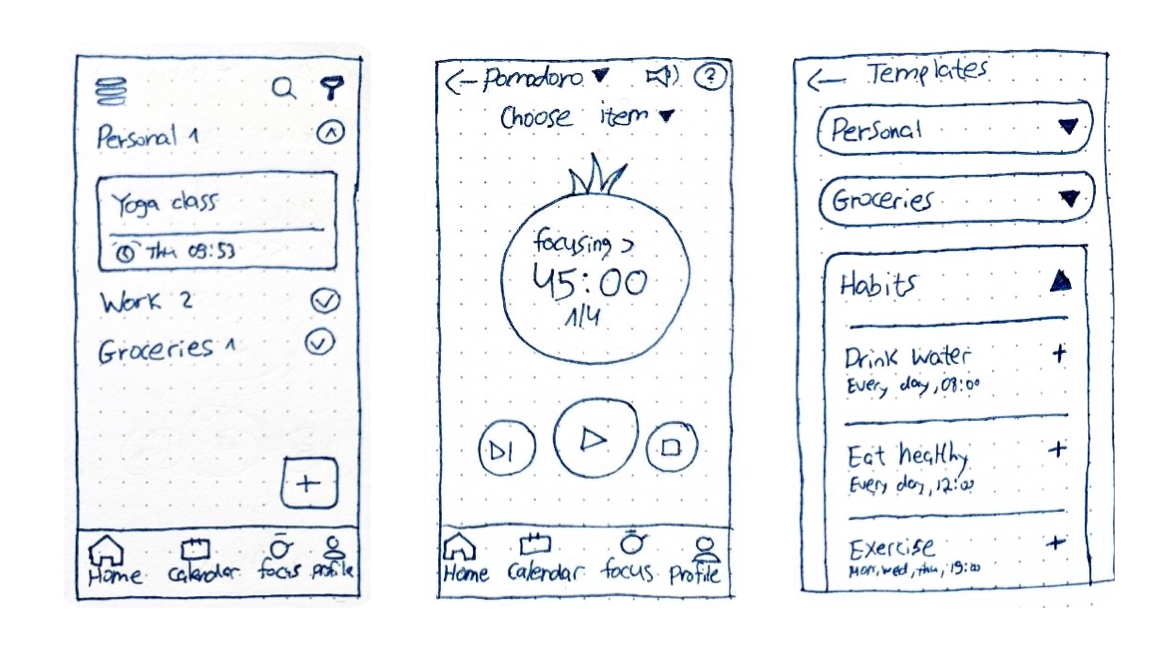 Personal 1
Yoga class
Thu 09:53
Work 2
Groceries 1
Home Calendar focus profile
Pomodoro ?
Choose item
focusing >
45:00
1/4
Home Calendar focus Profile
Templates
Personal
Groceries
Habits
Drink water
Every day, 08:00
Eat healthy
Every day, 12:00
Exercise
Mon, wed, thu, 19:00